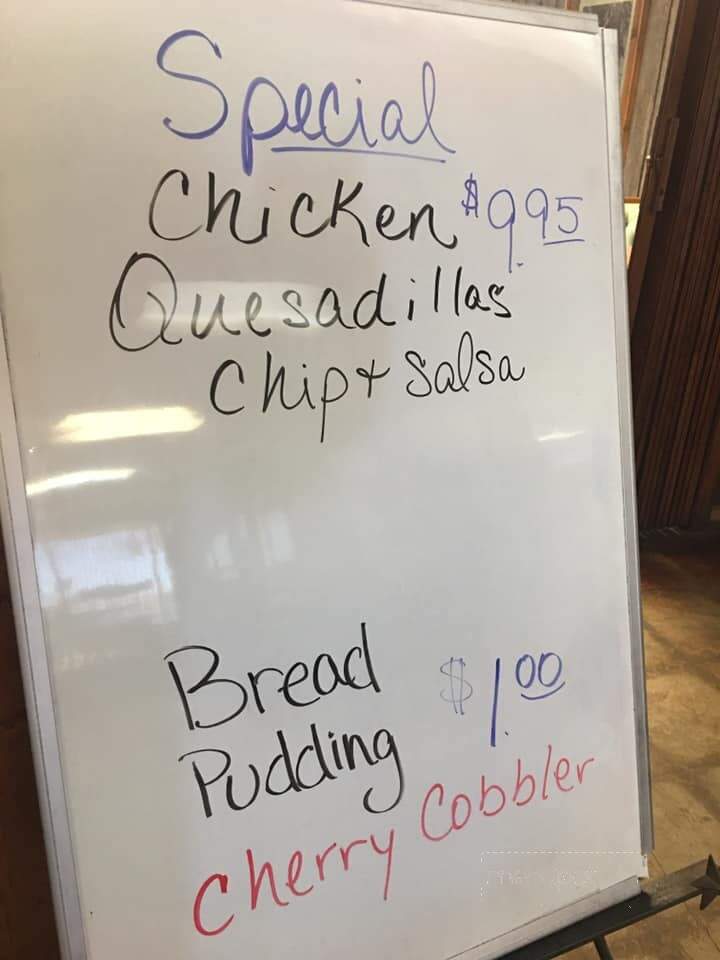 Special
Chicken $9.95
Quesadillas
Chip + Salsa
Bread $1.00
Pudding
Cherry Cobbler